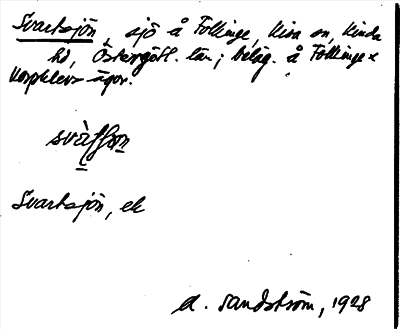 Svartsjön, sjö å Follinge, Kisa sn, Kinda
hd, Östergötl. län; beläg. å Follinge &
Korpklevs ägor.
Svartsjön, ek
A. Sandström, 1928